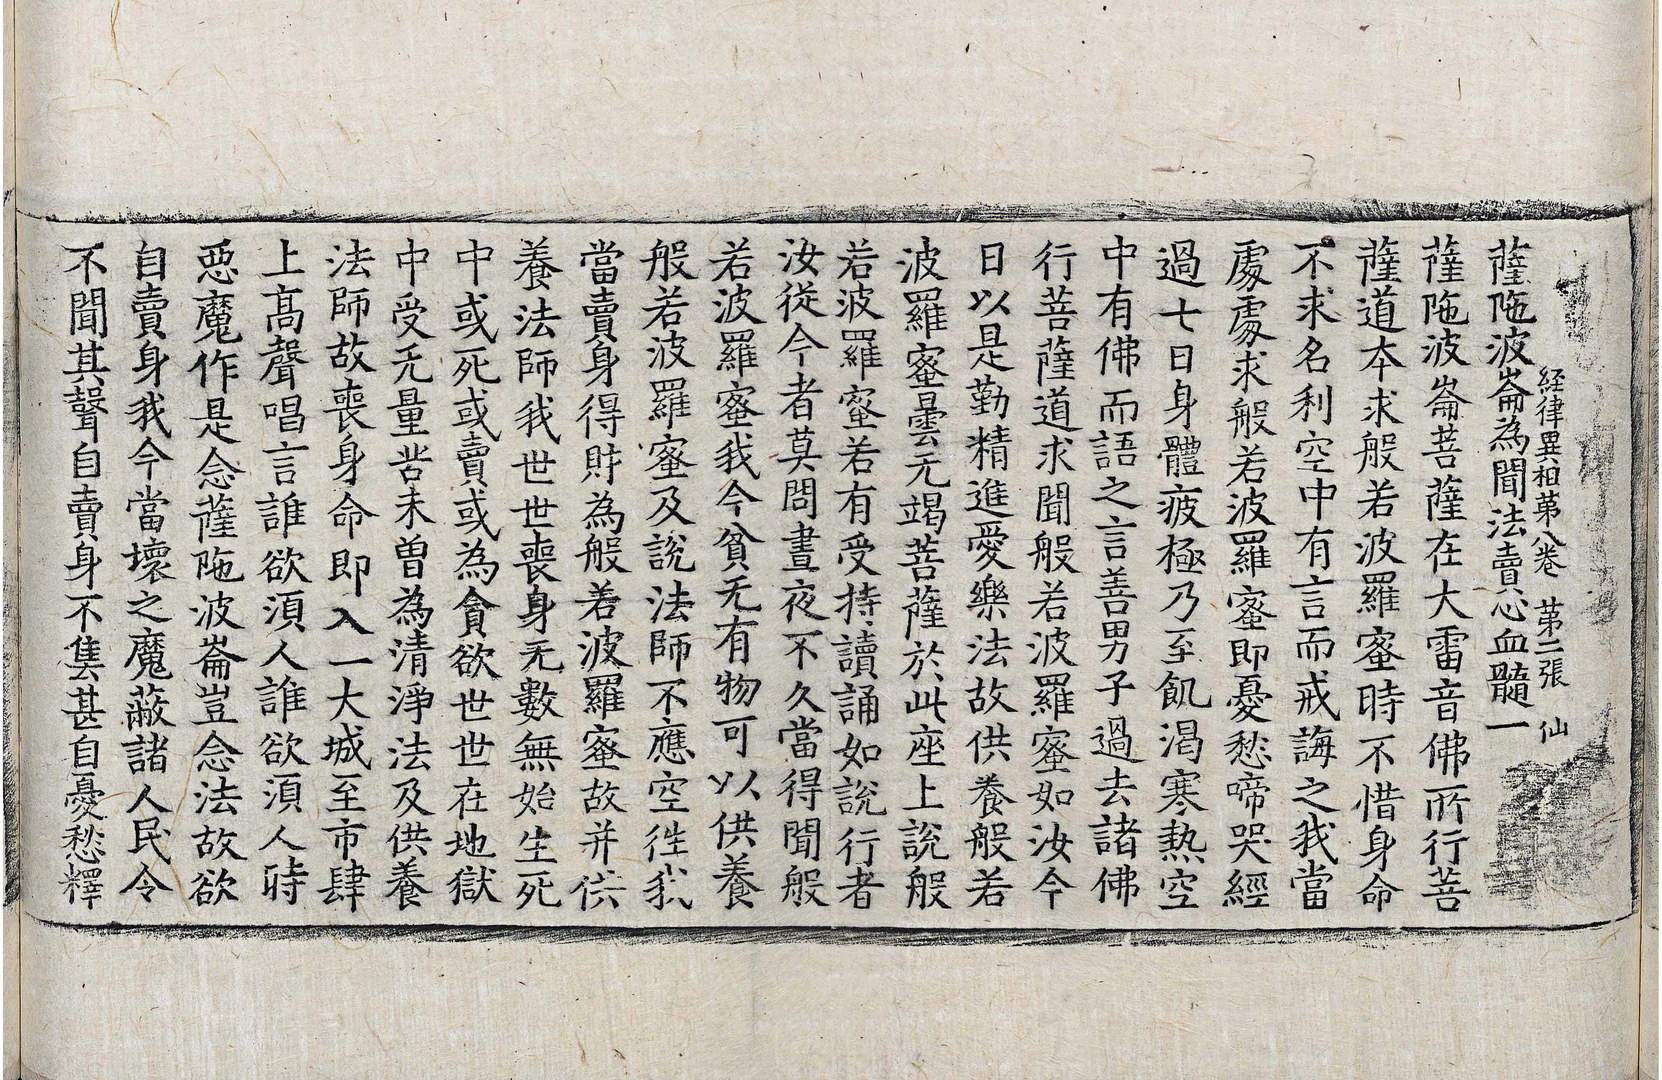 経律異相苐八卷 苐二張 仙
薩陁波崙為聞法賣心血髓一
薩陁波崙菩薩在大雷音佛所行菩
薩道本求般若波羅蜜時不惜身命
不求名利空中有言而戒誨之我當
處處求般若波羅蜜即憂愁啼哭經
過七日身體疲極乃至飢渴寒熱空
中有佛而語之言善男子過去諸佛
行菩薩道求聞般若波羅蜜如汝今
日以是勤精進愛樂法故供養般若
波羅蜜曇无竭菩薩於此座上說般
若波羅蜜若有受持讀誦如說行者
汝從今者莫問晝夜不久當得聞般
若波羅蜜我今貧无有物可以供養
般若波羅蜜及說法師不應空徃我
當賣身得財為般若波羅蜜故并供
養法師我世世喪身无數無始生死
中或死或賣或為貪欲世世在地獄
中受无量苦未曽為清淨法及供養
法師故喪身命即入一大城至市肆
上高聲唱言誰欲湏人誰欲湏人時
惡魔作是念薩陁波崙豈念法故欲
自賣身我今當壞之魔蔽諸人民令
不聞其聲自賣身不售甚自憂愁釋